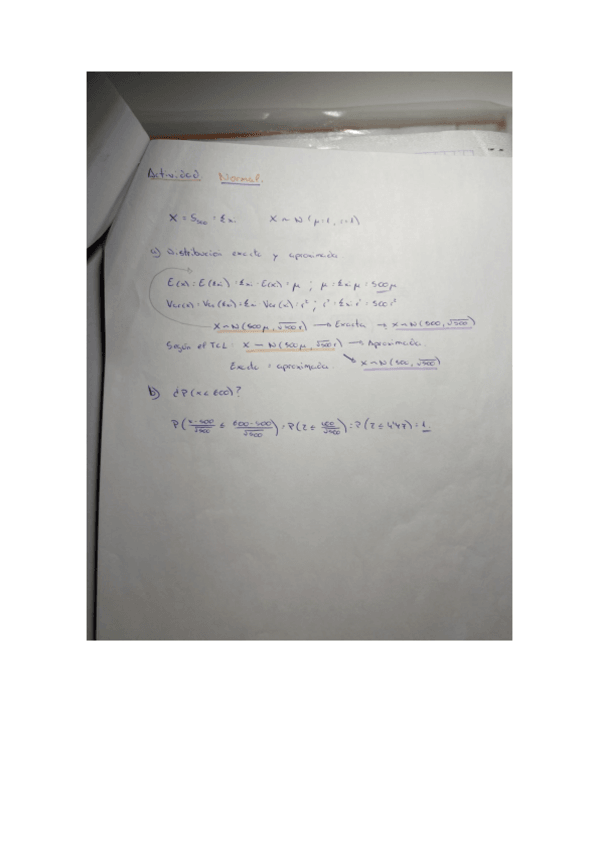 Actividad Normal.
X = S₅₀₀ = Σxi X ~ N (μ=1, σ=1)
a) Distribución exacta y aproximada
E(x) = E(Σxi) = Σxi · E(x) = μ ; μ = Σxi μ = 500μ
Var(x) = Var(Σxi) = Σxi Var(x) = σ² ; σ² = Σxi σ² = 500σ²
X ~ N(500μ, √500 σ) → Exacta → X ~ N(500, √500)
Según el TCL: X ~ N(500μ, √500 σ) → Aproximada.
Exacta = aproximada. X ~ N(500, √500)
b) ¿P(x ≤ 600)?
P((x-500)/√500 ≤ (600-500)/√500) = P(Z ≤ 100/√500) = P(Z ≤ 4'47) = 1.